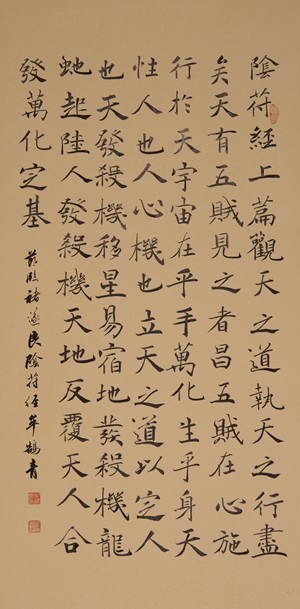 陰符經上篇觀天之道執天之行盡
矣天有五賊見之者昌五賊在心施
行於天宇宙在乎手萬化生乎身天
性人也人心機也立天之道以定人
也天發殺機移星易宿地發殺機龍
虵起陸人發殺機天地反覆天人合
發萬化定基
臨褚遂良陰符經牟鶴青